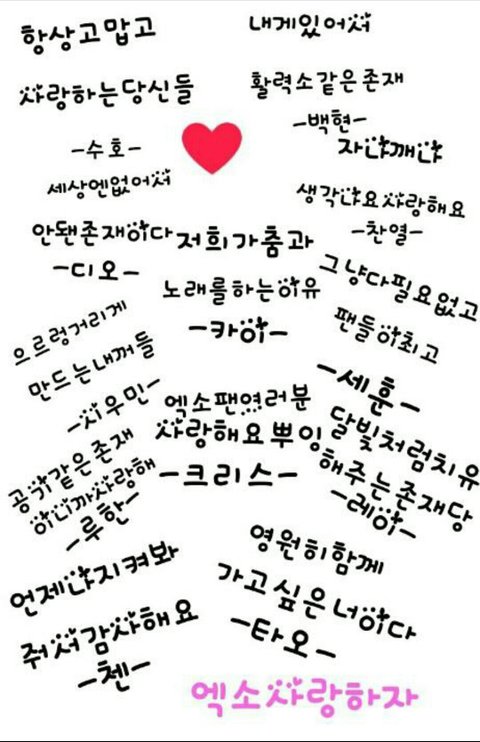 항상고맙고
사랑하는당신들
-수호-
내게있어서
활력소같은존재
-백현-
자나깨나
생각나요사랑해요
-찬열-
세상엔없어서
안됀존재이다
-디오-
저희가춤과
노래를하는이유
-카이-
그냥다필요없고
팬들이최고
-세훈-
으르렁거리게
만드는내꺼들
-시우민-
엑소팬였러분
사랑해요뿌잉
-크리스-
달빛처럼치유
해주는존재당
-레이-
공기같은존재
이니까사랑해
-루한-
영원히함께
가고싶은너이다
-타오-
언제나지켜봐
줘서감사해요
-첸-
엑소사랑하자